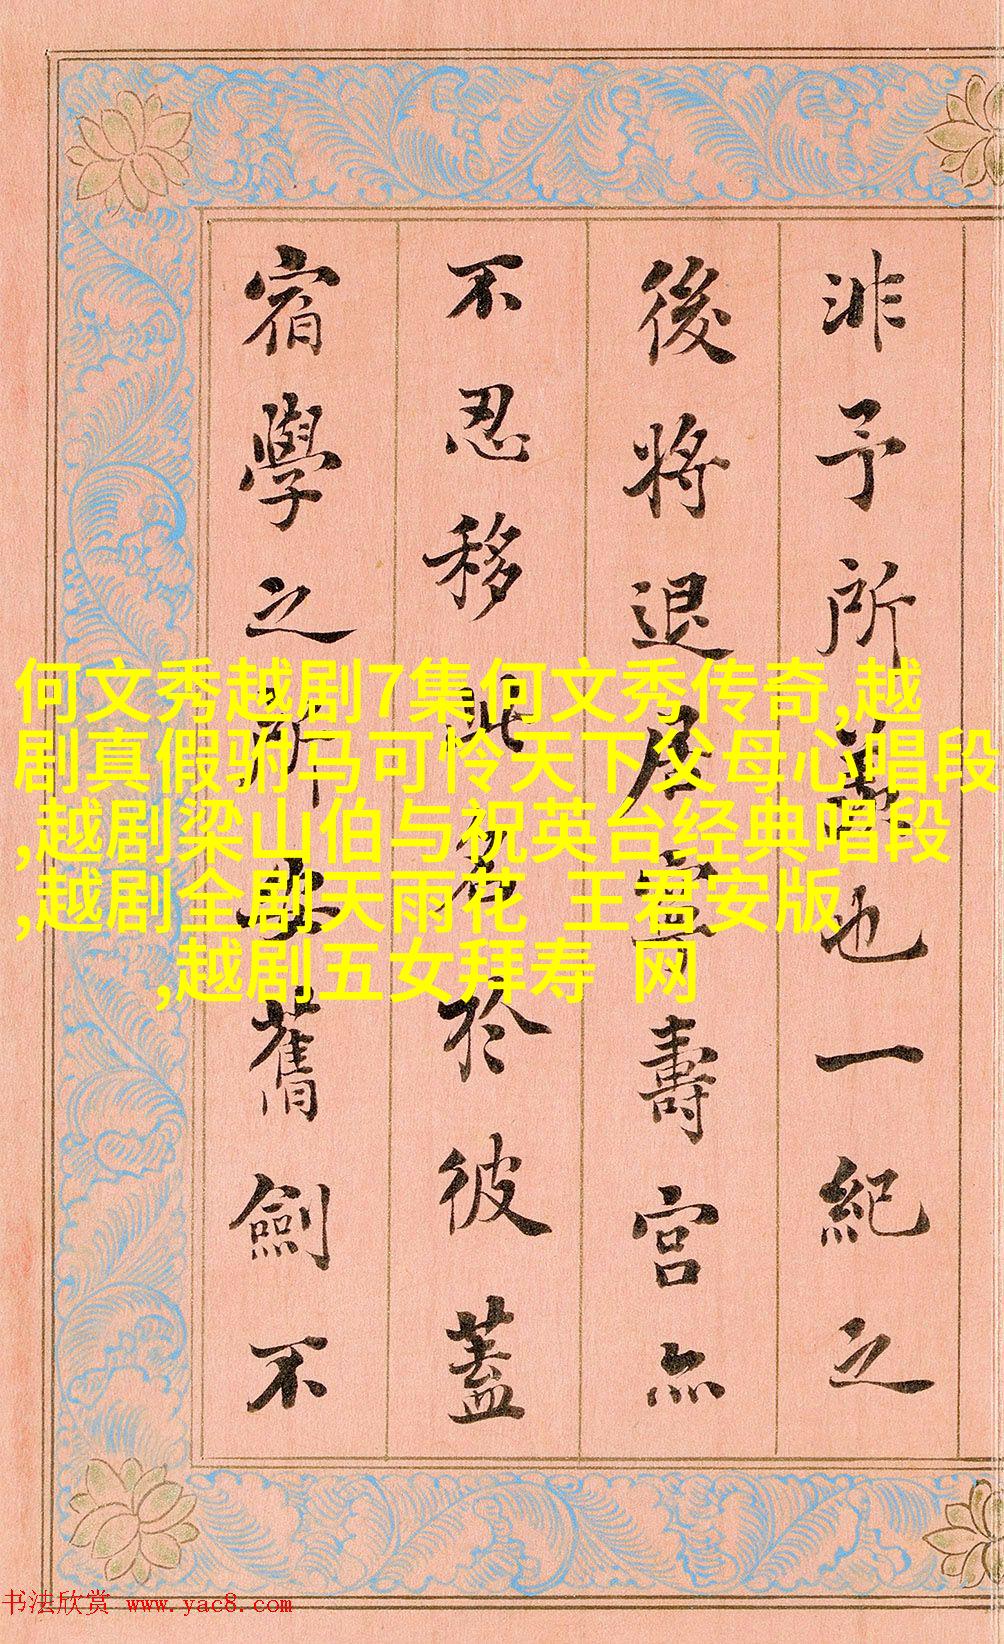 非予所也一紀之
後將退居寧壽宮亦
不忍移此於彼蓋
宿學之所舊劍不
何文秀越剧7集何文秀传奇,越
剧真假驸马可怜天下父母心唱段
,越剧梁山伯与祝英台经典唱段
,越剧全剧天雨花 王君安版
,越剧五女拜寿 网
书法欣赏 www.yac8.com